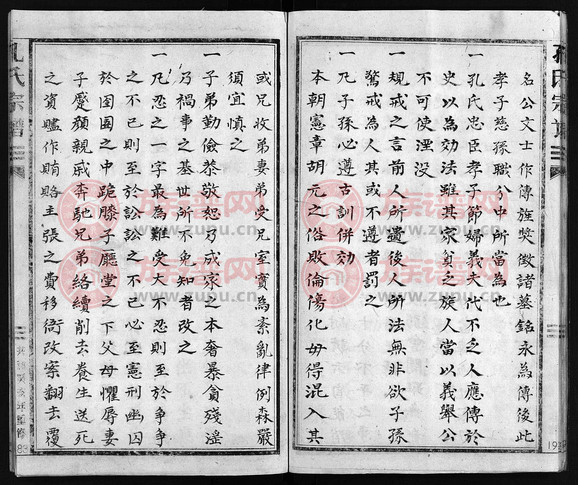 孔氏宗譜
名公文士作傳旌獎徵諸墓銘永為傳後此
孝子慈孫職分中所當為也
一孔氏忠臣孝子節婦義夫代不乏人應傳於
史以為効法雖其家貧乏族人當以義舉公
不可使湮没
一規戒之言前人所遺後人所法無非欲子孫
驚戒為人其或不遵者罰之
一凡子孫心遵古訓併効
本朝憲章胡元之俗敗倫傷化毋得混入其
或兄收弟妻弟受兄室實為紊亂律例森嚴
須宜慎之
一子弟勤儉恭敬恕乃成家之本奢暴貪殘淫
乃禍事之基世所不免知者改之
一凡忍之一字最為難受大不忍則至於爭爭
之不已則至於訟訟之不已心至憲刑幽囚
於囹圄之中跪膝子廳堂之下父母懼辱妻
子蹙頞親戚奔馳兄弟絡續削去養生送死
之資賍作賄賂主張之費移衙改案翻去覆
孔氏宗譜
族谱网
www.zupu.cn
族谱网
www.zupu.cn
族谱网
www.zupu.cn
族谱网
www.zupu.cn